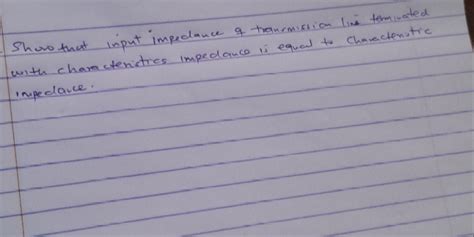 Show that input impedance of transmission line terminated
with characteristics impedance is equal to characteristic
impedance.